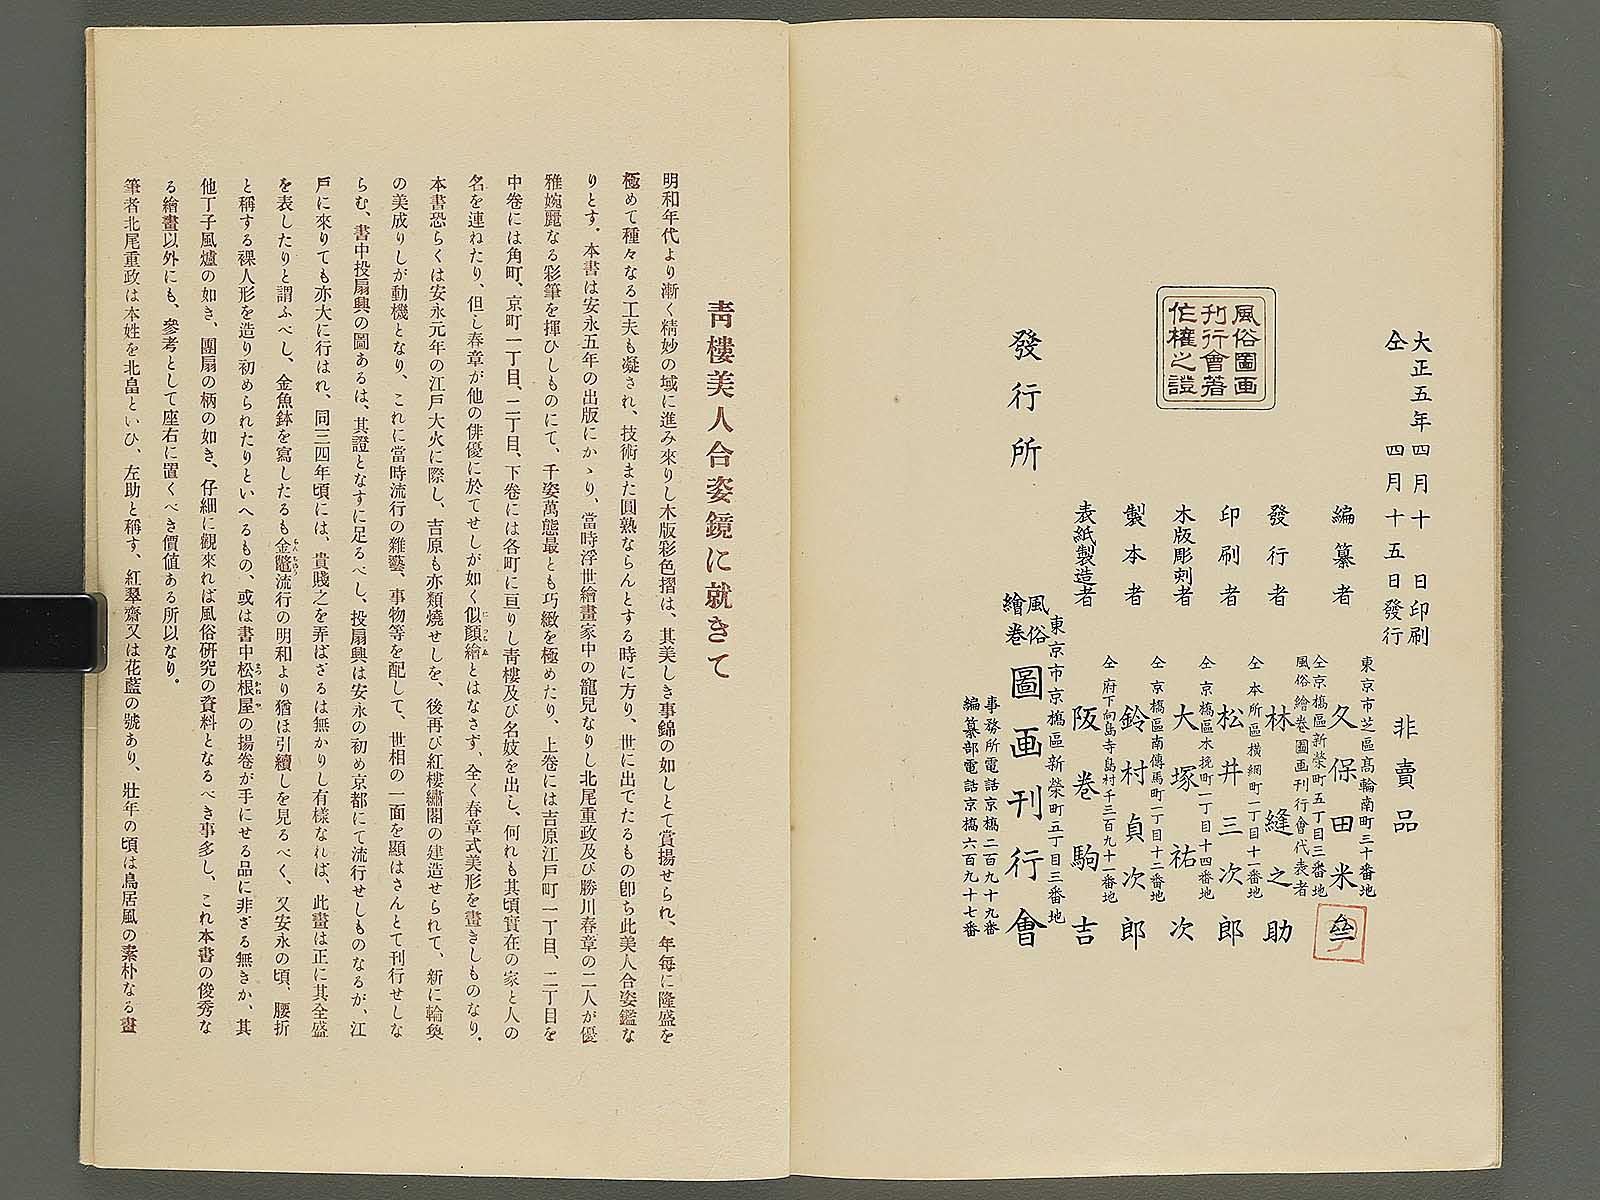 大正五年四月十日印刷
仝四月十五日發行
非賣品
編纂者
東京市芝區高輪南町三十番地
久保田米
發行者
仝京橋區新榮町五丁目三番地
風俗繪卷圖画刊行會代表者
林縫之助
印刷者
仝本所區横網町一丁目十一番地
松井三次郎
木版彫刻者
仝京橋區木挽町一丁目十四番地
大塚祐次
製本者
仝京橋區南傳馬町一丁目十二番地
鈴村貞次郎
表紙製造者
仝府下向島寺島村千三百九十一番地
阪巻駒吉
風俗圖画
刊行會著
作權之證
發行所
東京市京橋區新榮町五丁目三番地
風俗繪卷圖画刊行會
事務所電話京橋二百九十九番
編纂部電話京橋六百九十七番
靑樓美人合姿鏡に就きて
明和年代より漸く精妙の域に進み來りし木版彩色摺は、其美しき事錦の如しとて賞揚せられ、年每に隆盛を
極めて種々なる工夫も凝され、技術また圓熟ならんとする時に方り、世に出でたるもの卽ち此美人合姿鑑な
りとす。本書は安永五年の出版にかゝり、當時浮世繪畫家中の寵兒なりし北尾重政及び勝川春章の二人が優
雅婉麗なる彩筆を揮ひしものにて、千姿萬態最とも巧緻を極めたり、上卷には吉原江戸町一丁目、二丁目を
中卷には角町、京町一丁目、二丁目、下卷には各町に亘りし靑樓及び名妓を出し、何れも其頃實在の家と人の
名を連ねたり、但し春章が他の俳優に於てせしが如く似顏繪とはなさず、全く春章式美形を畫きしものなり。
本書恐らくは安永元年の江戸大火に際し、吉原も亦類燒せしを、後再び紅樓繡閣の建造せられて、新に輪奐
の美成りしが動機となり、これに當時流行の雜藝、事物等を配して、世相の一面を顯はさんとて刊行せしな
らむ、書中投扇興の圖あるは、其證となすに足るべし、投扇興は安永の初め京都にて流行せしものなるが、江
戸に來りても亦大に行はれ、同三四年頃には、貴賤之を弄ばざるは無かりし有樣なれば、此畫は正に其全盛
を表したりと謂ふべし、金魚鉢を寫したるも金鼈流行の明和より猶ほ引續しを見るべく、又安永の頃、腰折
と稱する裸人形を造り初められたりといへるもの、或は書中松根屋の揚卷が手にせる品に非ざる無きか、其
他丁子風爐の如き、團扇の柄の如き、仔細に觀來れば風俗研究の資料となるべき事多し、これ本書の俊秀な
る繪畫以外にも、參考として座右に置くべき價値ある所以なり。
筆者北尾重政は本姓を北畠といひ、左助と稱す、紅翠齋又は花藍の號あり、壯年の頃は鳥居風の素朴なる畫